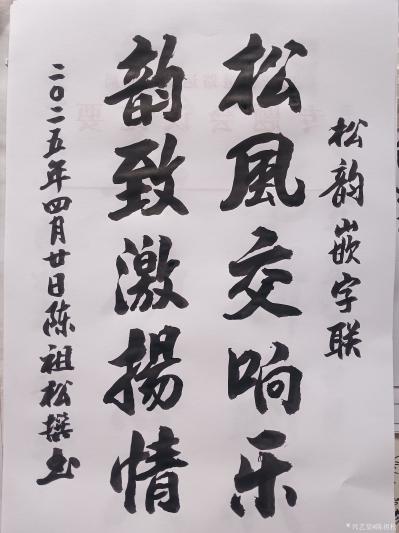 松韵嵌字联
松風交响乐
韵致激揚情
二〇二五年四月廿日陈祖松撰书